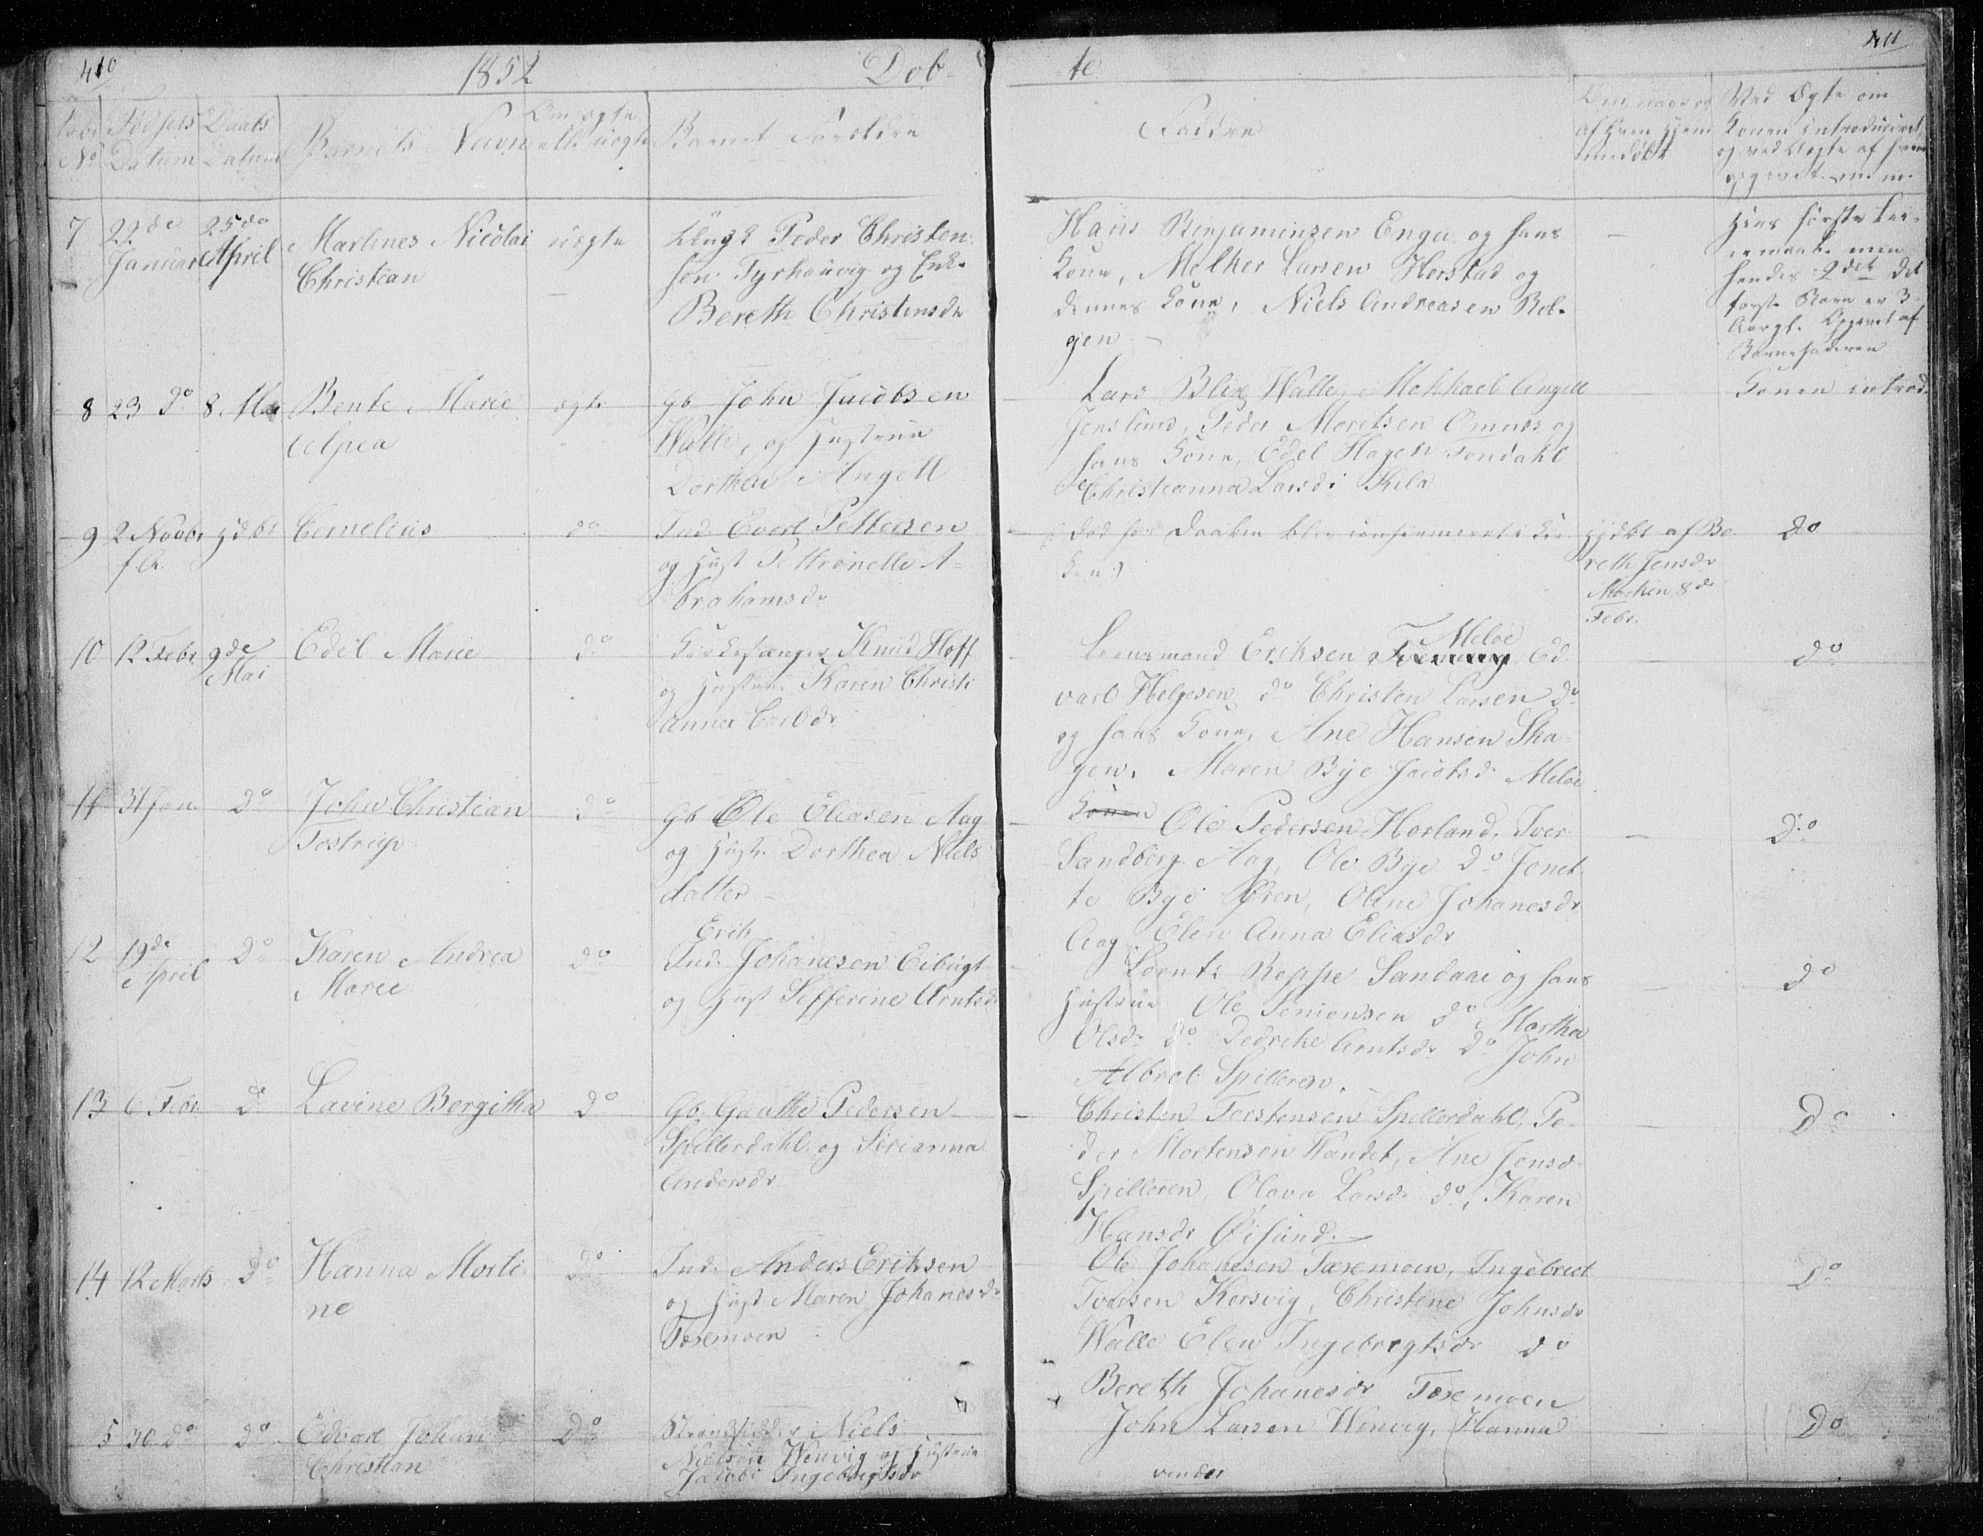 410
1852
Døb-
te
411
Fødsels
Datum
Daabs
Datum
Barnets Navn
Om ægte
eller uægte
Barnets Forældre
Faddre
Ved Ægte om
Konen introduceret
og ved Uægte af hvem
7 22de Januar 25de April Martines Nicolai Christian uægte
Ungk Peder Christen-
sen Tyrhaugvig og Enke
Bereth Christensdr
Hans Benjaminsen Enga og hans
Kone, Melker Larsen Herstad og
dennes Kone, Niels Andreasen Bol-
gen
Hans første Lei-
ermaal men
hendes 2det det
første Barn er 3
Aar gl. Opgivet af
Barnefaderen
8 23 do 8 Mai Bente Marie
Elpea
ægte
Gb John Jacobsen
Walle, og Hustrue
Dorthea Angell
Lars Blix Walle, Mekhael Angell
Jenslund, Peder Moretsen Omnes og
hans Kone, Edel Hagen Fondahl
Christianna Larsdr Kila
Konen introd.
9 2 Novbr f. A. Cornelius do
Ind. Evert Pettersen
og Hust Pettronelle A-
brahamsdr
død før Daaben blev confirmeret i Kir-
ken
Hjdbt af Be-
reth Jensdr
8de
Febr.
do
10 12 Febr 9de Mai Edel Marie do
Kirkesanger Knud Hoff
og Hustrue Karen Christi
anna Carlsdr
Meløe
Leensmand Eriksen Ed-
vart Helgesen do Christen Larsen do
og hans Kone, Ane Hansen Ska-
gen, Maren Bye Jacobsdr Meløe
do
11 31 Jan do John Christian
Tostrup
do
Gb Ole Eliasen Aag
og Hustr. Dorthea Niels
datter
Konen Ole Pedersen Horland, Iver
Sandberg Aag, Ole Bye do Jonet-
te Bye Øren, Oline Johanesdr
Aag Elen Anna Eliasdr
Do
12 19de April do Karen Andrea
Marie
do
Erik
Ind. Johanesen Eibugt
og Hust Sefferine Arntsdr
Lornts Reppe Sandaae og hans
Hustrue Ole Simonsen do Martha
Olsdr do Dedreke Arntsdr do John
Albret Spilleren.
do
13 6 Febr do Lavine Bergitha do
Gb. Gautte Pedersen
Spillerdahl og Serianna
Andersdr
Christen Torstensen Spillerdahl, Pe-
der Mortensen Wandet, Ane Jensd
Spilleren, Olava Larsdr do, Karen
Hansdr Øisund.
Do
14 12 Marts do Hanna Morti
ne
do
Ind. Anders Eriksen
og Hust Maren Johanesdr
Toremoen
Ole Johanesen Toremoen, Ingebrect
Iversen Korsvig, Christine Johnsdr
Walle Elen Ingebregtsdr do
Bereth Johanesdr Toremoen
Do
5 30 do do Edvart Johan
Christian
Do
Strandsidder Niels
Nielsen Wenvig og Hustrue
Jacobi Ingebregtsdr
John Larsen Wenvig, Hanna
vender
Do